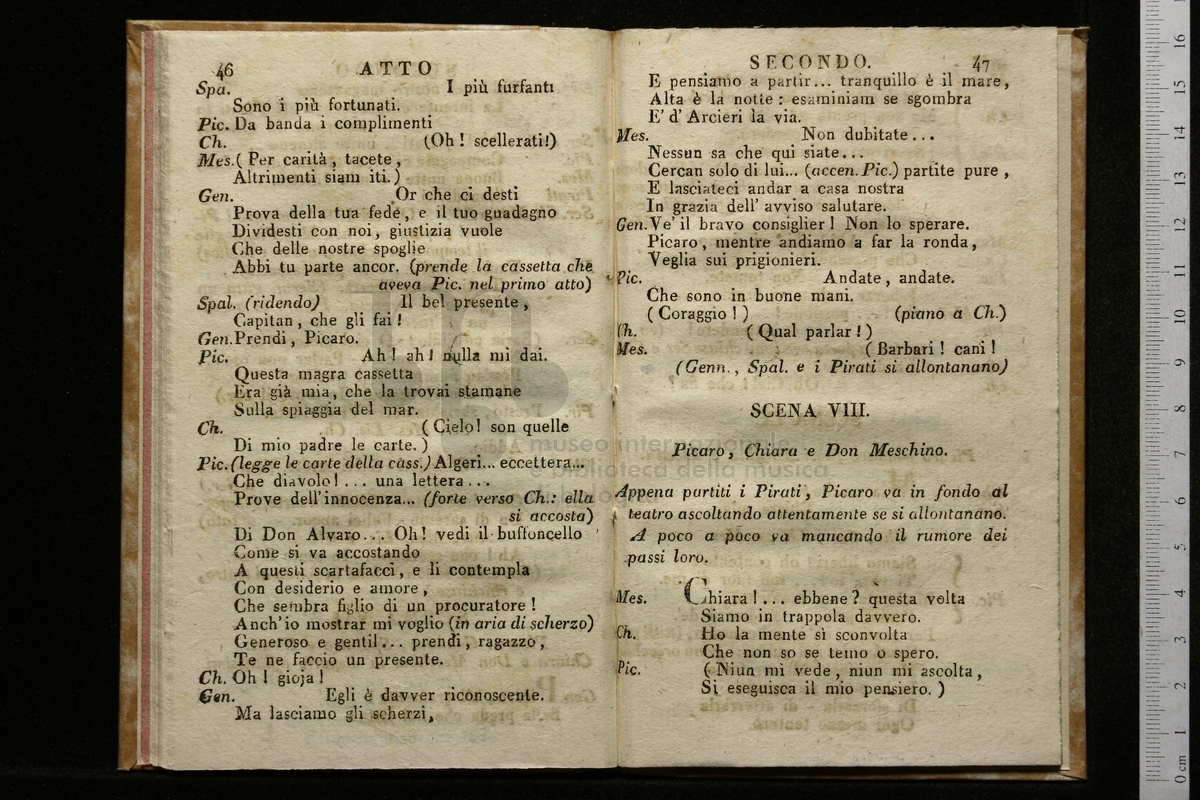 46 ATTO
Spa. I più furfanti
Sono i più fortunati.
Pic. Da banda i complimenti
Ch. (Oh! scellerati!)
Mes. ( Per carità, tacete,
Altrimenti siam iti. )
Gen. Or che ci desti
Prova della tua fede, e il tuo guadagno
Dividesti con noi, giustizia vuole
Che delle nostre spoglie
Abbi tu parte ancor. (prende la cassetta che
aveva Pic. nel primo atto)
Spal. (ridendo) Il bel presente,
Capitan, che gli fai!
Gen. Prendi, Picaro.
Pic. Ah! ah! nulla mi dai.
Questa magra cassetta
Era già mia, che la trovai stamane
Sulla spiaggia del mar.
Ch. ( Cielo! son quelle
Di mio padre le carte. )
Pic. (legge le carte della cass.) Algeri... eccettera...
Che diavolo! ... una lettera ...
Prove dell'innocenza... (forte verso Ch.: ella
si accosta)
Di Don Alvaro... Oh! vedi il buffoncello
Come si va accostando
A questi scartafacci, e li contempla
Con desiderio e amore,
Che sembra figlio di un procuratore!
Anch'io mostrar mi voglio (in aria di scherzo)
Generoso e gentil... prendi, ragazzo,
Te ne faccio un presente.
Ch. Oh! gioja!
Gen. Egli è davver riconoscente.
Ma lasciamo gli scherzi,
SECONDO. 47
E pensiamo a partir... tranquillo è il mare,
Alta è la notte: esaminiam se sgombra
E' d' Arcieri la via.
Mes. Non dubitate...
Nessun sa che qui siate...
Cercan solo di lui... (accen. Pic.) partite pure,
E lasciateci andar a casa nostra
In grazia dell' avviso salutare.
Gen. Ve' il bravo consiglier! Non lo sperare.
Picaro, mentre andiamo a far la ronda,
Veglia sui prigionieri.
Pic. Andate, andate.
Che sono in buone mani.
( Coraggio! ) (piano a Ch.)
Ch. ( Qual parlar! )
Mes. ( Barbari! cani!
(Genn., Spal. e i Pirati si allontanano)
SCENA VIII.
Picaro, Chiara e Don Meschino.
Appena partiti i Pirati, Picaro va in fondo al
teatro ascoltando attentamente se si allontanano.
A poco a poco va mancando il rumore dei
passi loro.
Mes. Chiara!... ebbene? questa volta
Siamo in trappola davvero.
Ch. Ho la mente sì sconvolta
Che non so se temo o spero.
Pic. ( Niun mi vede, niun mi ascolta,
Si eseguisca il mio pensiero. )
museo internazionale
biblioteca della musica
0 cm 1 2 3 4 5 6 7 8 9 10 11 12 13 14 15 16